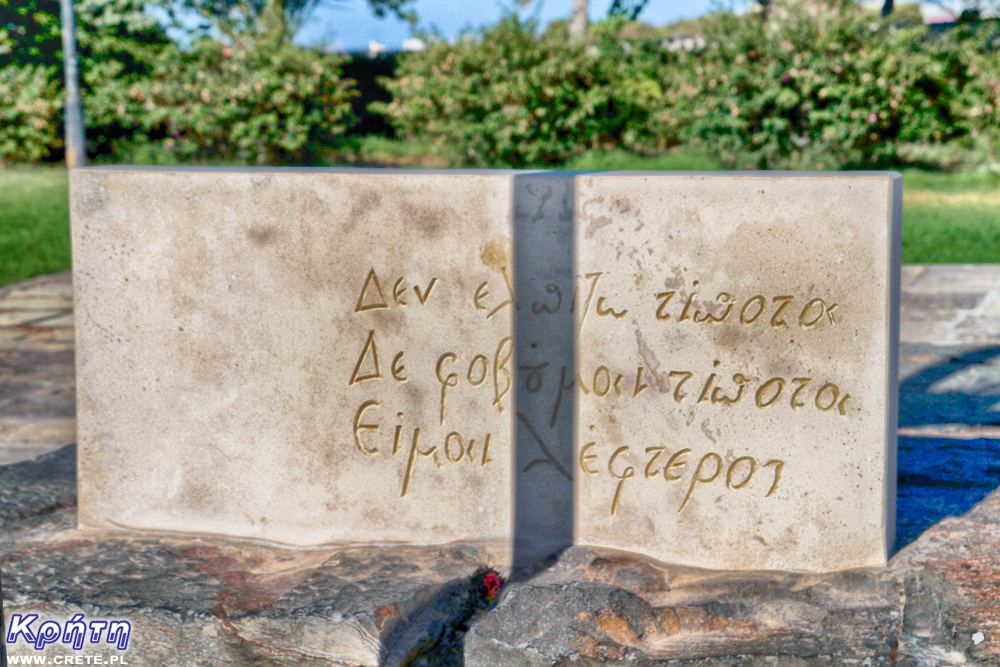 Δεν ελπίζω τίποτα
Δε φοβούμαι τίποτα
Είμαι λέφτερος
Κρήτη
WWW.CRETE.PL